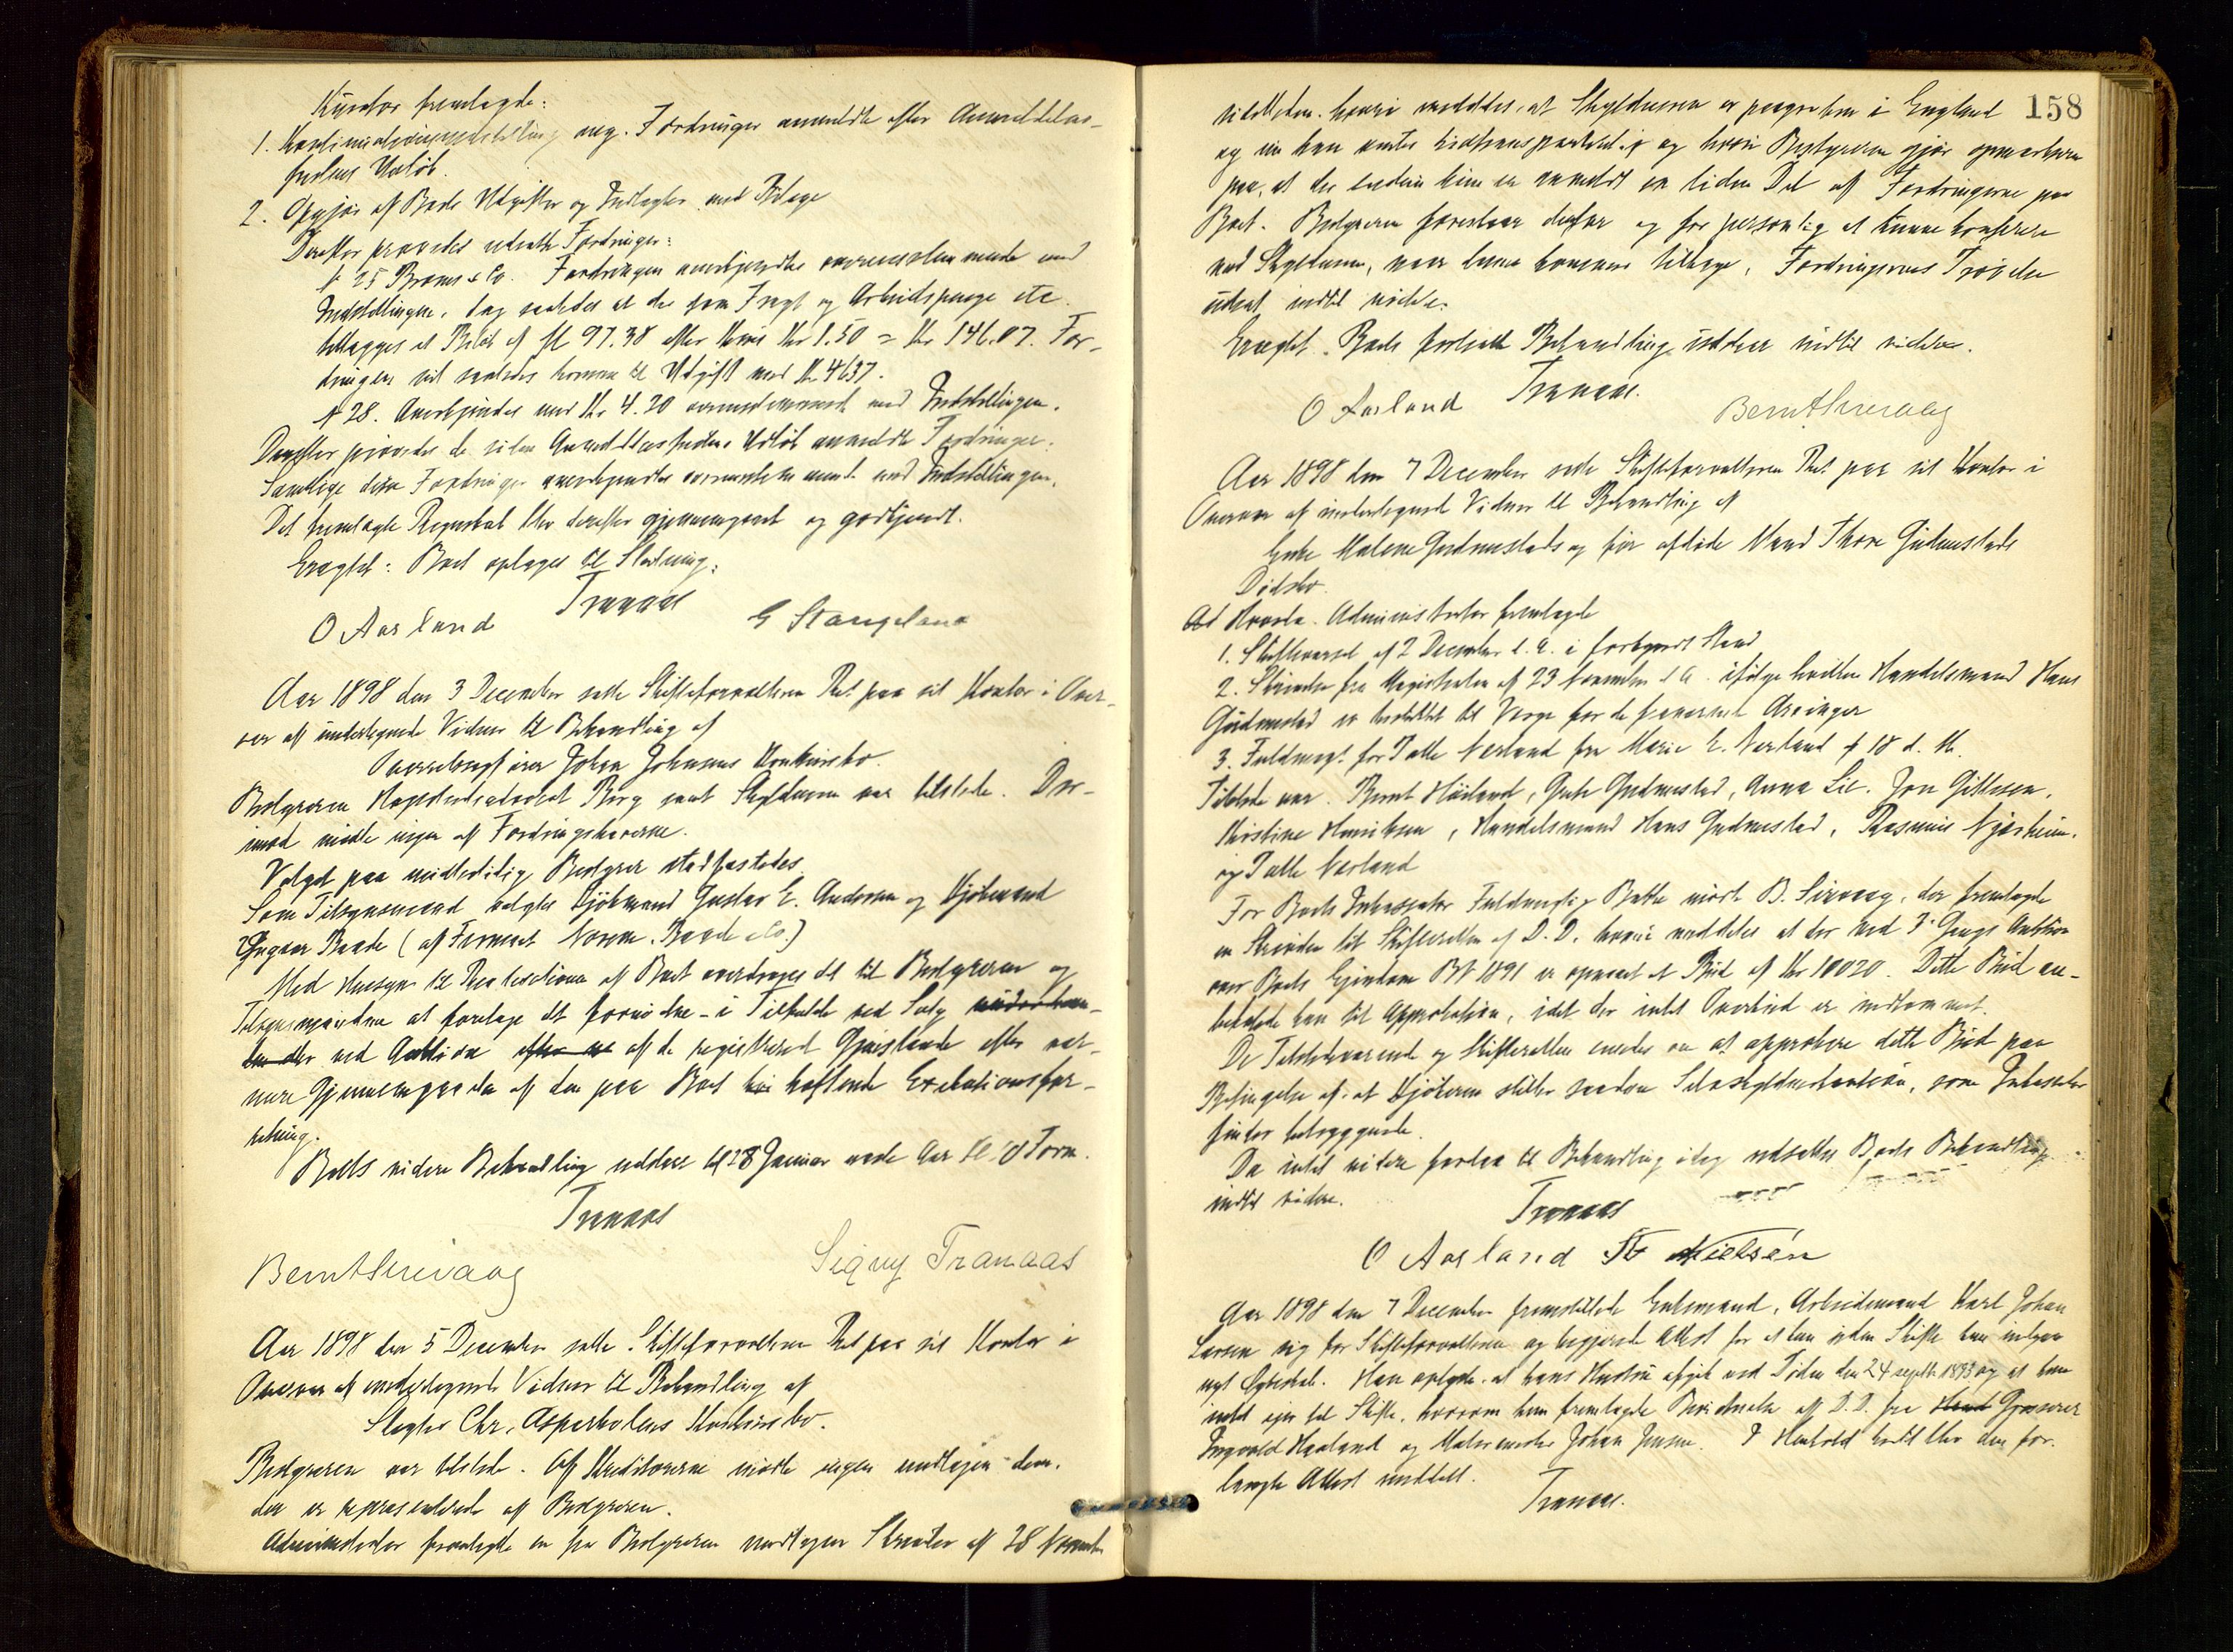 Kurator fremlagde:
1. Kontinuationsindstilling ang. Fordringer anmeldte efter Anmeldelses-
fristens Udløb.
2. Opgjør af Boets Udgifter og Indtægter med Bilage
Derefter prøvedes udsatte Fordringer:
№ 25 Broms & Co. Fordringen anerkjendtes overensstemmende med
Indstillingen, dog saaledes at der for Fragt og Arbeidspenge etc.
tillægges et Beløb af 97.38 efter Kurs Kr 1.50 = Kr 146.07. For-
dringen vil saaledes komme til Udgift med Kr 4637.
№ 28. Anerkjendes med Kr 4.20 overensstemmende med Indstillingen.
Derefter prøvedes de siden Anmeldelsesfristens Udløb anmeldte Fordringer.
Samtlige disse Fordringer anerkjendtes overensstemmende med Indstillingen.
Det fremlagte Regnskab blev derefter gjennemgaaet og godkjendt.
Eragtet: Boet optages til Slutning.
Tranaas
O Aarland G Stangeland
Aar 1898 den 3 December satte Skifteforvalteren Ret paa sit Kontor i Over-
vær af undertegnede Vidner til Behandling af
Johan Johnsens Konkursbo.
Bestyreren Høiesteretsadvokat Berg samt Skyldneren var tilstede. Der-
imod mødte ingen af Fordringshaverne.
Valget paa midlertidig Bestyrer stadfæstedes
Som Tilsynsmænd valgtes Kjøbmand Gustav E. Andersen og Kjøbmand
Ingvar Baade (af Firmaet Baade & Co.)
Med Hensyn til Realisationen af Boet overdroges det til Bestyreren og
Tilsynsmændene at foretage det fornødne - i Tilfælde ved Salg underhaan-
den eller ved Auktion efter af de registrerede Gjenstande efter nær-
mere Gjennemgaaelse af den paa Boet heftende Exekutionsfor-
retning.
Boets videre Behandling udsættes til 28 Januar næste Aar Kl 10 Form.
Tranaas
Bernt Sirevaag Signy Tranaas
Aar 1898 den 5 December satte Skifteforvalteren Ret paa sit Kontor i
Overvær af undertegnede Vidner til Behandling af
Slagter Chr. Asperholens Konkursbo.
Bestyreren var tilstede. Af Kreditorerne mødte ingen undtagen dem,
der er repræsenterede af Bestyreren.
Administrator fremlagde en fra Bestyreren modtagen Skrivelse af 28 Novemb
158
sidstleden, hvori meddeles, at Skyldneren er paa reise i England
og hvori Bestyreren gjør opmærksom
paa, at der endnu kun er anmeldt en liden Del af Fordringerne paa
Boet. Bestyreren foreslaar derfor og for personlig at kunne konferere
med Skyldneren, naar denne kommer tilbage, Fordringernes Prøvelse
udsat indtil videre.
Eragtet. Boets fortsatte Behandling udstaar indtil videre.
Tranaas.
O Aarland Bernt Sirevaag
Aar 1898 den 7 December satte Skifteforvalteren Ret paa sit Kontor i
Overvær af undertegnede Vidner til Behandling af
Enke Malene Gudmestads og før afdøde Mand Thore Gudmestads
Dødsbo.
Administrator fremlagde
1. Skiftevarsel af 2 December d. A. i forkyndt Stand
2. Skrivelse fra Magistraten af 23 November d A. ifølge hvilken Handelsmand Hans
Gudmestad er beskikket til Verge for de fraværende Arvinger
3. Fuldmagt for Tolle Nærland fra Marie E. Nærland af 18 d. M.
Tilstede var Bernt Høiland, Gabr Gudmestad, Anna Lie, Jon Gittesen,
Kristine Henriksen, Handelsmand Hans Gudmestad, Rasmus Njærheim
og Tolle Nærland
For Boets Inkassator Fuldmægtig mødte B. Sirevaag, der fremlagde
en Skrivelse til Skifteretten af D. D. hvori meddeles at der ved 3die Gangs Auktion
over Boets Eiendom BN 1891 er opnaaet et Bud af Kr 10020. Dette Bud an-
befalede han til Approbation, idet der intet Overbud er indkommet.
De Tilstedeværende og Skifteretten enedes om at approbere dette Bud paa
Betingelse af at Kjøberen stiller saadan Selvskyldnerkaution, som Inkassator
finder betryggende.
Da intet videre forelaa til Behandling idag udsattes Boets Behandling
indtil videre.
Tranaas
O Aarland Nielsén
Aar 1898 den 7 December fremstillede Enkemand, Arbeidsmand Karl Johan
Larsen sig for Skifteforvalteren og begjærede Attest for at han uden Skifte kan indgaa
nyt Egteskab. Han oplyste, at hans Hustru afgik ved Døden den 24 septbr 1893 og at han
intet eier til Skifte, hvorom han fremlagde Bevidnelse af D. D. fra Grosserer
Ingvald Haaland og Malermester Johan Jensen. I Henhold hertil blev den for-
langte Attest meddelt.
Tranaas.